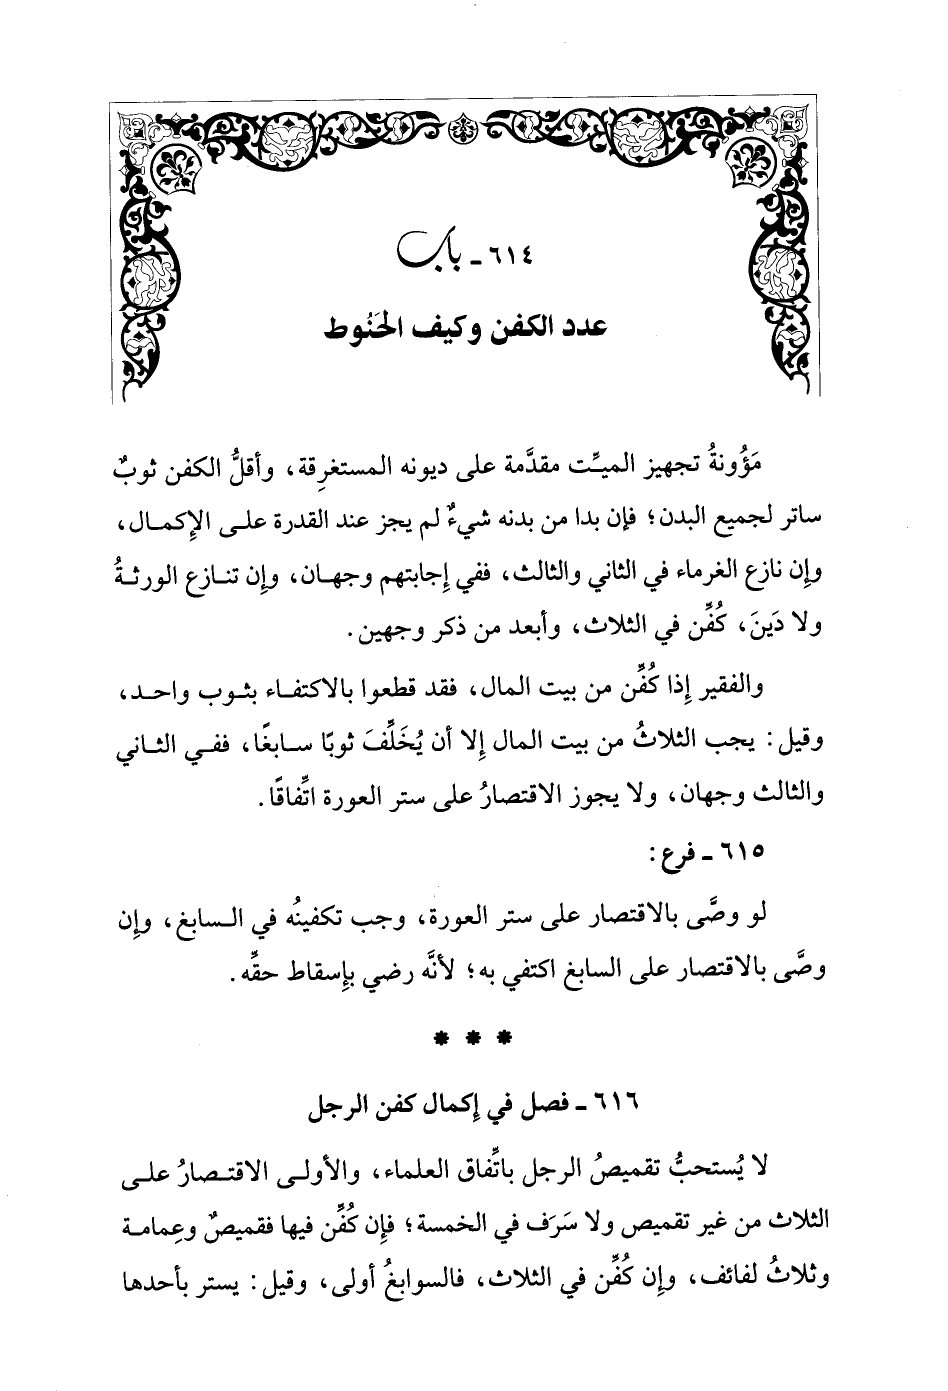 ٦١٤ - باب
عدد الكفن وكيف الحَنُوط
مَؤُونةُ تجهيز الميِّت مقدَّمة على ديونه المستغرِقة، وأقلُّ الكفن ثوبٌ
ساتر لجميع البدن؛ فإن بدا من بدنه شيءٌ لم يجز عند القدرة على الإكمال،
وإن نازع الغرماء في الثاني والثالث، ففي إجابتهم وجهان، وإن تنازع الورثةُ
ولا دَينَ، كُفِّن في الثلاث، وأبعد من ذكر وجهين.
والفقير إذا كُفِّن من بيت المال، فقد قطعوا بالاكتفاء بثوب واحد،
وقيل: يجب الثلاثُ من بيت المال إلا أن يُخَلِّفَ ثوبًا سابغًا، ففي الثاني
والثالث وجهان، ولا يجوز الاقتصارُ على ستر العورة اتِّفاقًا.
٦١٥ - فرع:
لو وصَّى بالاقتصار على ستر العورة، وجب تكفينُه في السابغ، وإن
وصَّى بالاقتصار على السابغ اكتفي به؛ لأنَّه رضي بإسقاط حقِّه.
* * *
٦١٦ - فصل في إكمال كفن الرجل
لا يُستحبُّ تقميصُ الرجل باتِّفاق العلماء، والأولى الاقتصارُ على
الثلاث من غير تقميص ولا سَرَف في الخمسة؛ فإن كُفِّن فيها فقميصٌ وعِمامة
وثلاثُ لفائف، وإن كُفِّن في الثلاث، فالسوابغُ أولى، وقيل: يستر بأحدها